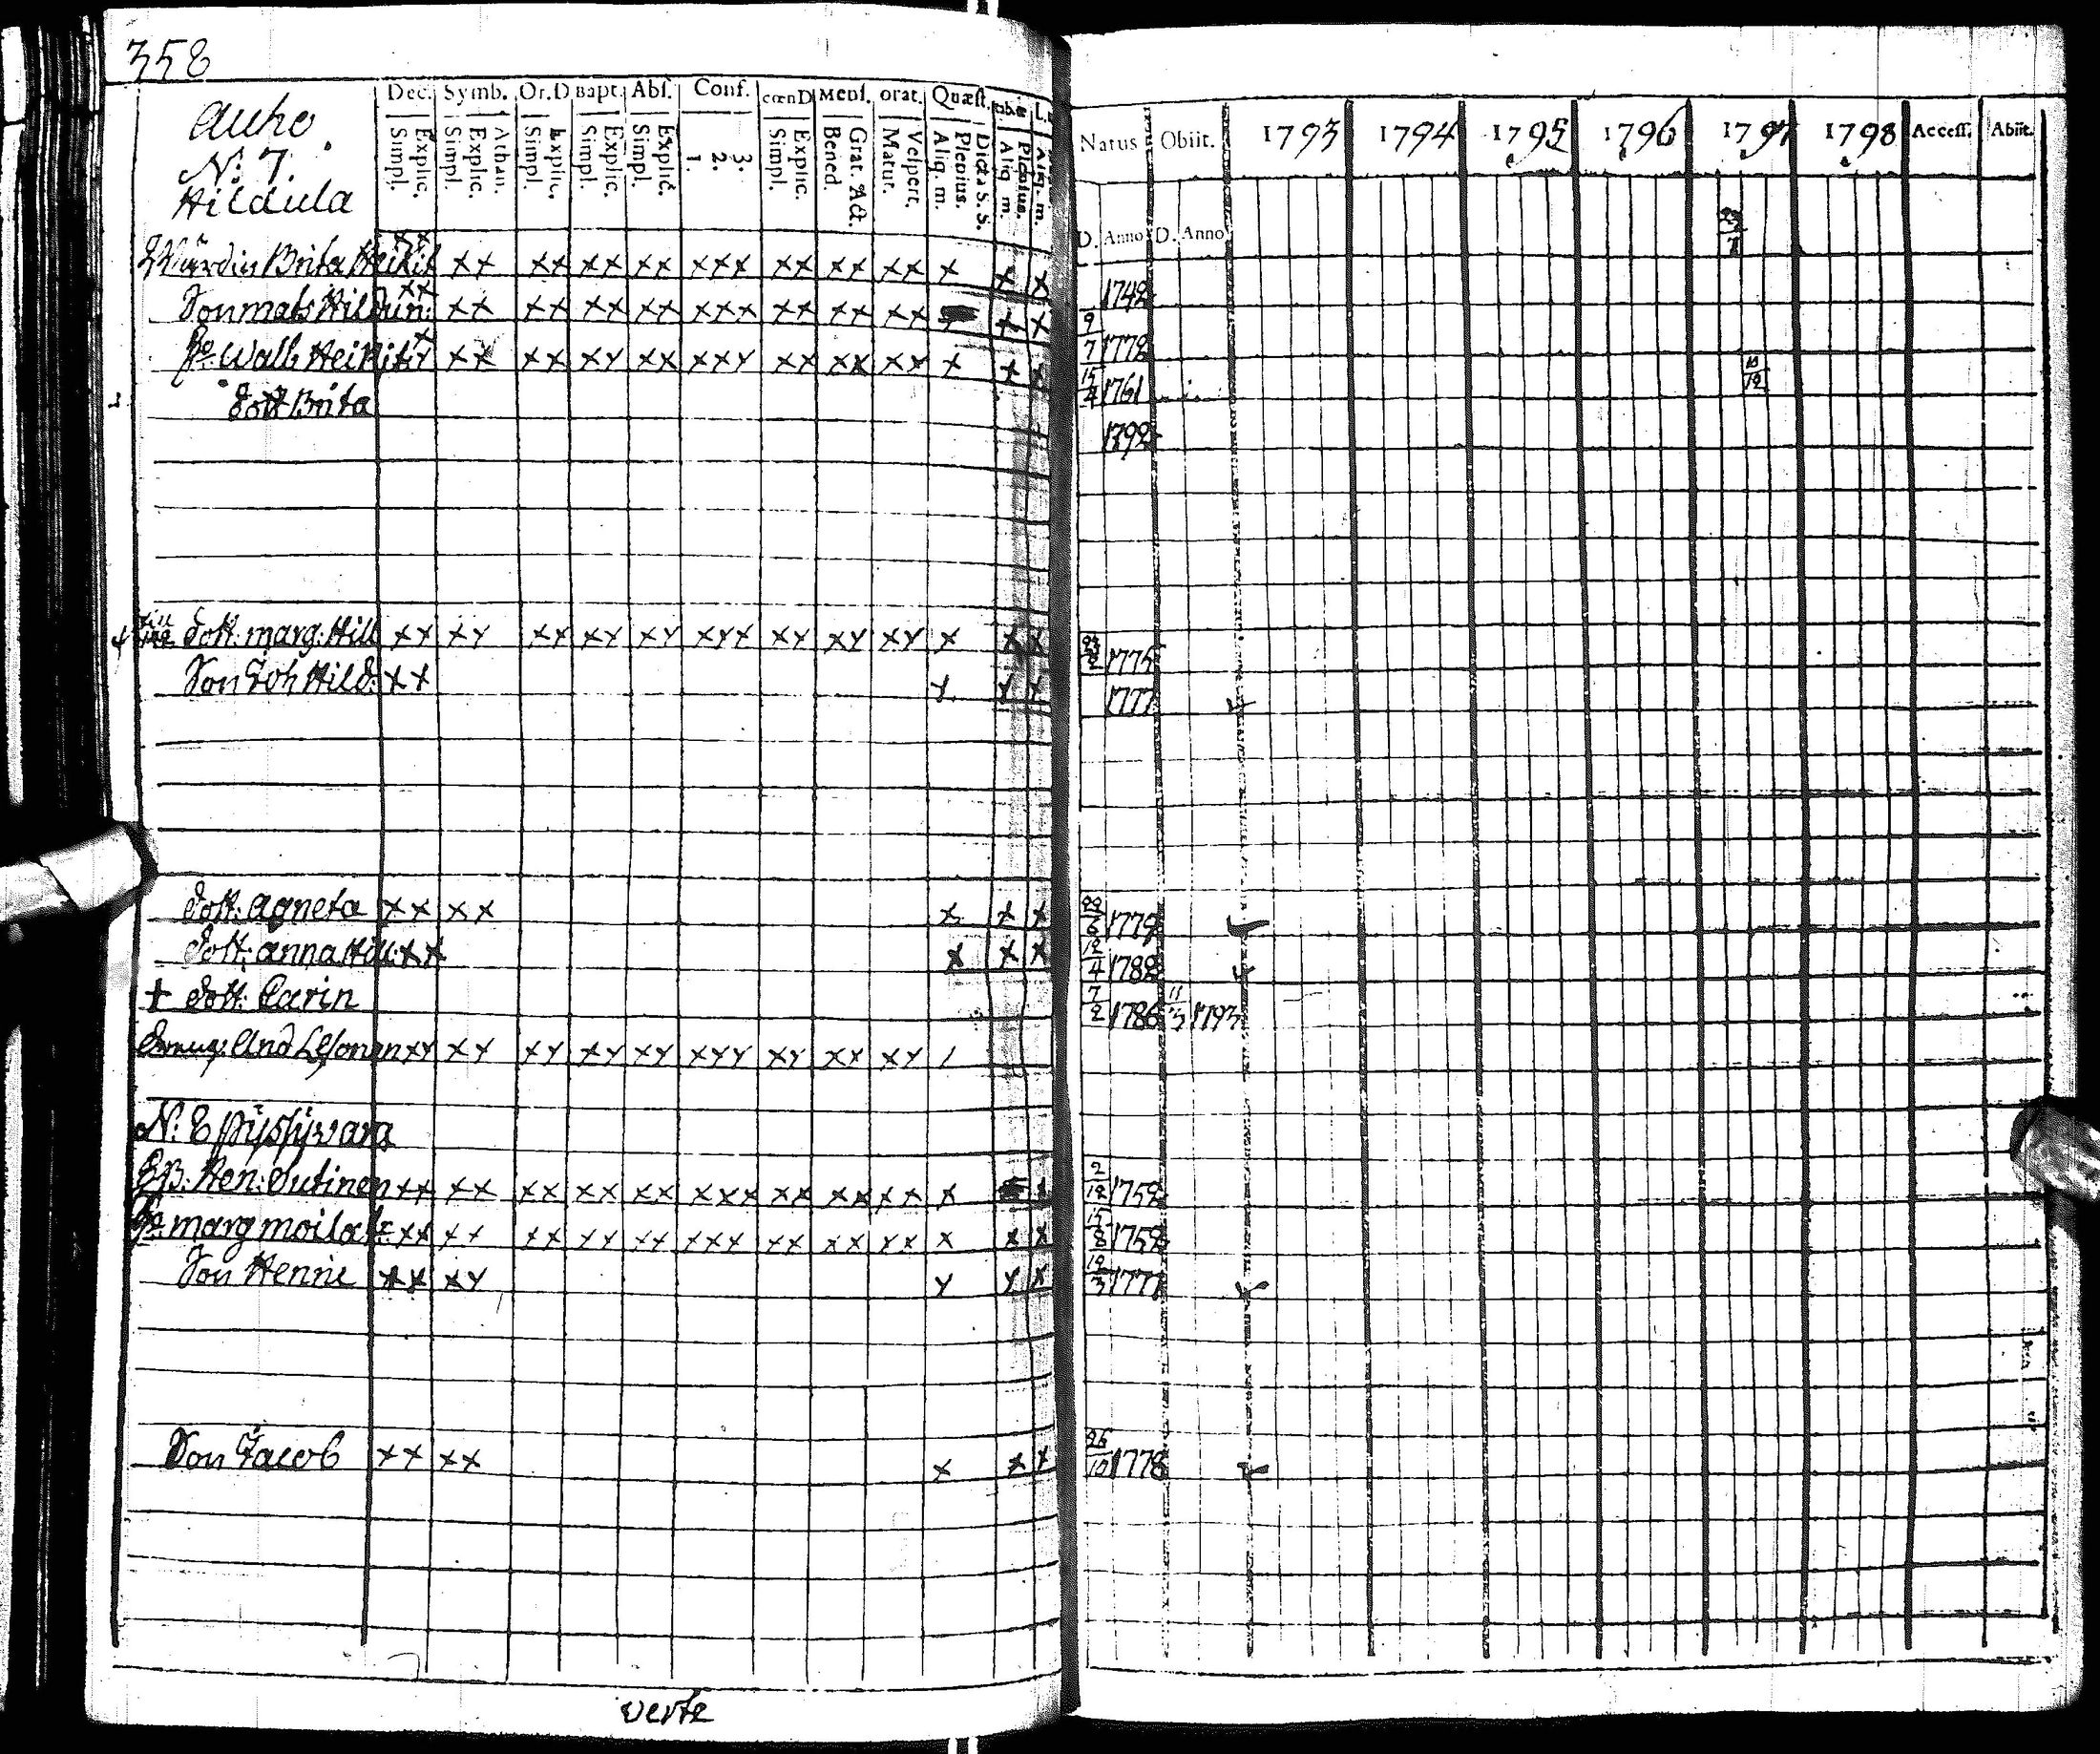 358
Auho
N: 7.
Hildula
Dec. Symb. Or. D Bapt. Abs. Conf. cœn D Mens. orat. Quæst.
Simpl. Explic. Simpl. Explic. Athan. Simpl. Explic. Simpl. Explic. Simpl. Explic. 1. 2. 3. Simpl. Explic. Bened. Grat. Act. Matut. Vespert. Aliq. m. Plenius. Dicta S. S. Aliq. m. Plenius. Aliq. m.
Natus Obiit. 1793 1794 1795 1796 1797 1798 Access. Abiit.
D. Anno D. Anno
Brita xx xx xx xx xxx xx xx xx x x x 1742
Son mats xx xx xx xx xx xxx xx xx xx x x 9/7 1772
H: Walb Heikit: xx xx xx xx xxx xx xx xx x x x 15/4 1761 10/12
dott Brita 1792
till dott: marg: Hild xx xx xx xx xx xxx xx xx xx x x x 1775
Son Joh Hild: xx x x x 1777
dott: Agneta xx xx x x x 22/6 1779
dott: anna Hild: xx x x x 12/4 1782
† dott: Carin 7/2 1786 11/3 1793
And xx xx xx xx xx xxx xx xx xx /
N: 8 pyssywara
Hen: Sutinen xx xx xx xx xx xxx xx xx xx x x 2/12 1752
H: marg moila xx xx xx xx xx xxx xx xx xx x x x 15/8 1752
Son Henric xx xx x x x 12/3 1777
Son Jacob xx xx x x x 26/10 1778
verte